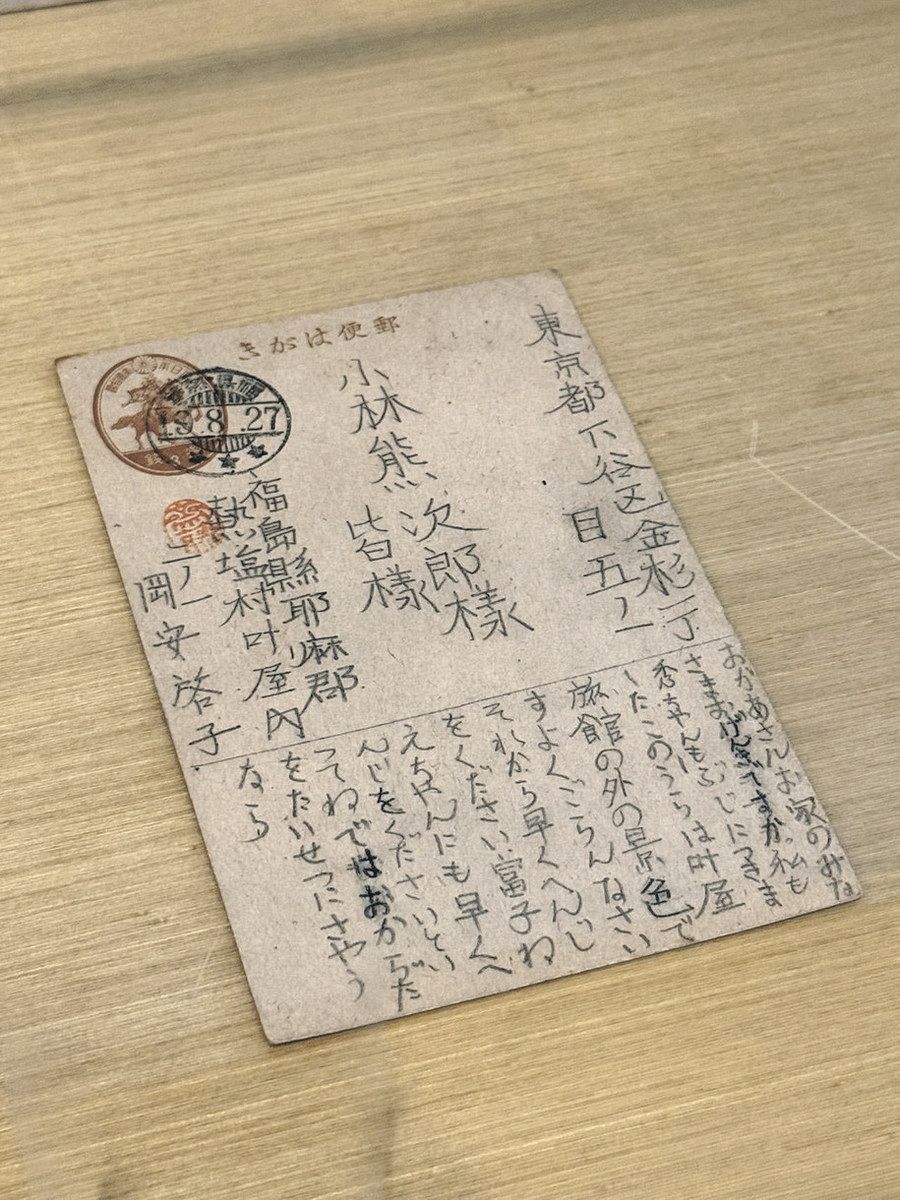 郵便はがき
19.8.27
東京都下谷区金杉一丁
目五ノ一
小林熊次郎様
皆様
福島縣耶麻郡
熱塩村叶屋内
二ノ一
岡安啓子
おかあさんお家のみな
さままおげんきですか私も
秀ちゃんもぶじにつきま
したこのうらは叶屋
旅館の外の景色で
すよくごらんなさい
それから早くへんじ
をください富子ね
えちやんにも早くへ
んじをくださいとい
つてねではおからだ
をたいせつにさやう
なら